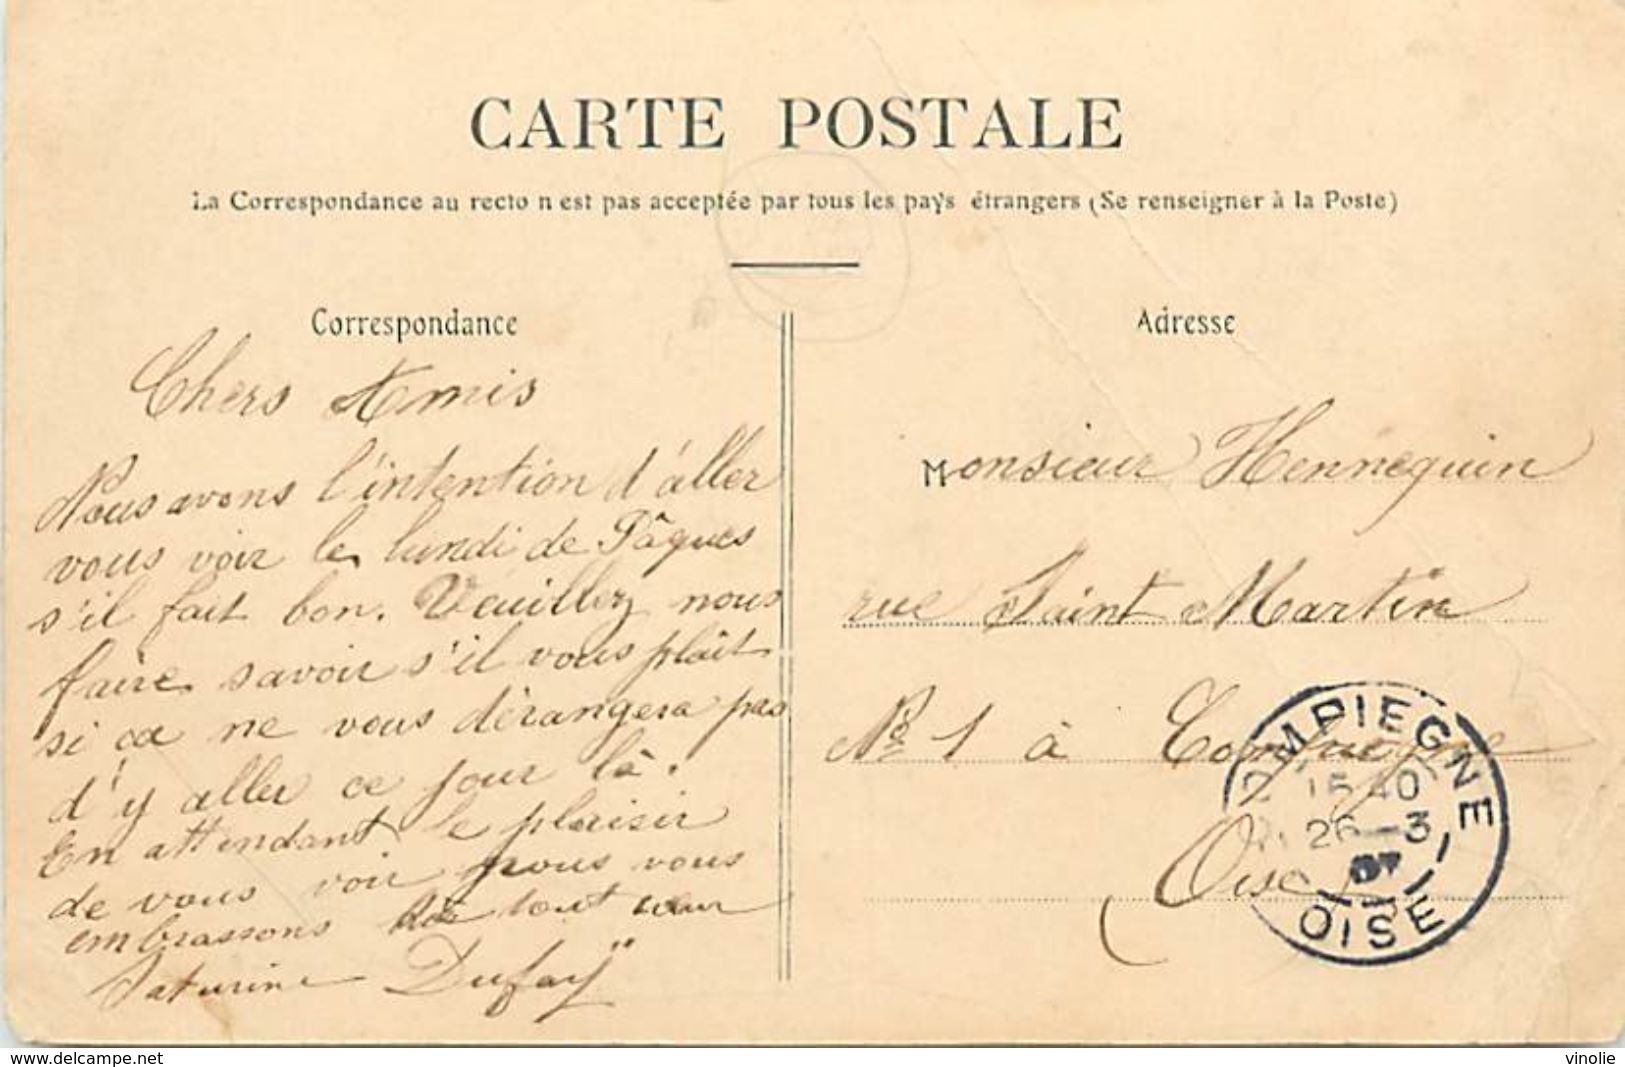 CARTE POSTALE
La Correspondance au recto n est pas acceptée par tous les pays étrangers (Se renseigner à la Poste)
Correspondance
Chers Amis
Nous avons l'intention d'aller
vous voir le lundi de Pâques
s'il fait bon. Veuillez nous
faire savoir s'il vous plaît
si ca ne vous dérangera pas
d'y aller ce jour là.
En attendant le plaisir
de vous voir nous vous
embrassons de tout cœur
Saturine Dufaÿ
Adresse
Monsieur Hennequin
rue Saint Martin
No 1 à Compiegne
Oise
COMPIEGNE
15 40
26 - 3
07
OISE
www.delcampe.net
vinolie